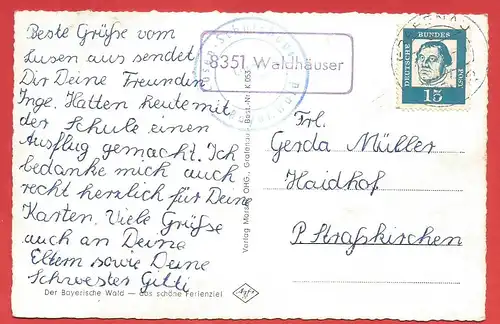 Beste Grüße vom
Lusen aus sendet
Dir Deine Freundin
Inge. Hatten heute mit
der Schule einen
Ausflug gemacht. Ich
bedanke mich auch
recht herzlich für Deine
Karten. Viele Grüße
auch an Deine
Eltern sowie Deine
Schwester Gitti
Der Bayerische Wald — das schöne Ferienziel
8351 Waldhäuser
Verlag Morsak OHG., Grafenau Best.-Nr. K 653
Agfa
DEUTSCHE BUNDESPOST
15
Frl.
Gerda Müller
Haidhof
P. Straßkirchen